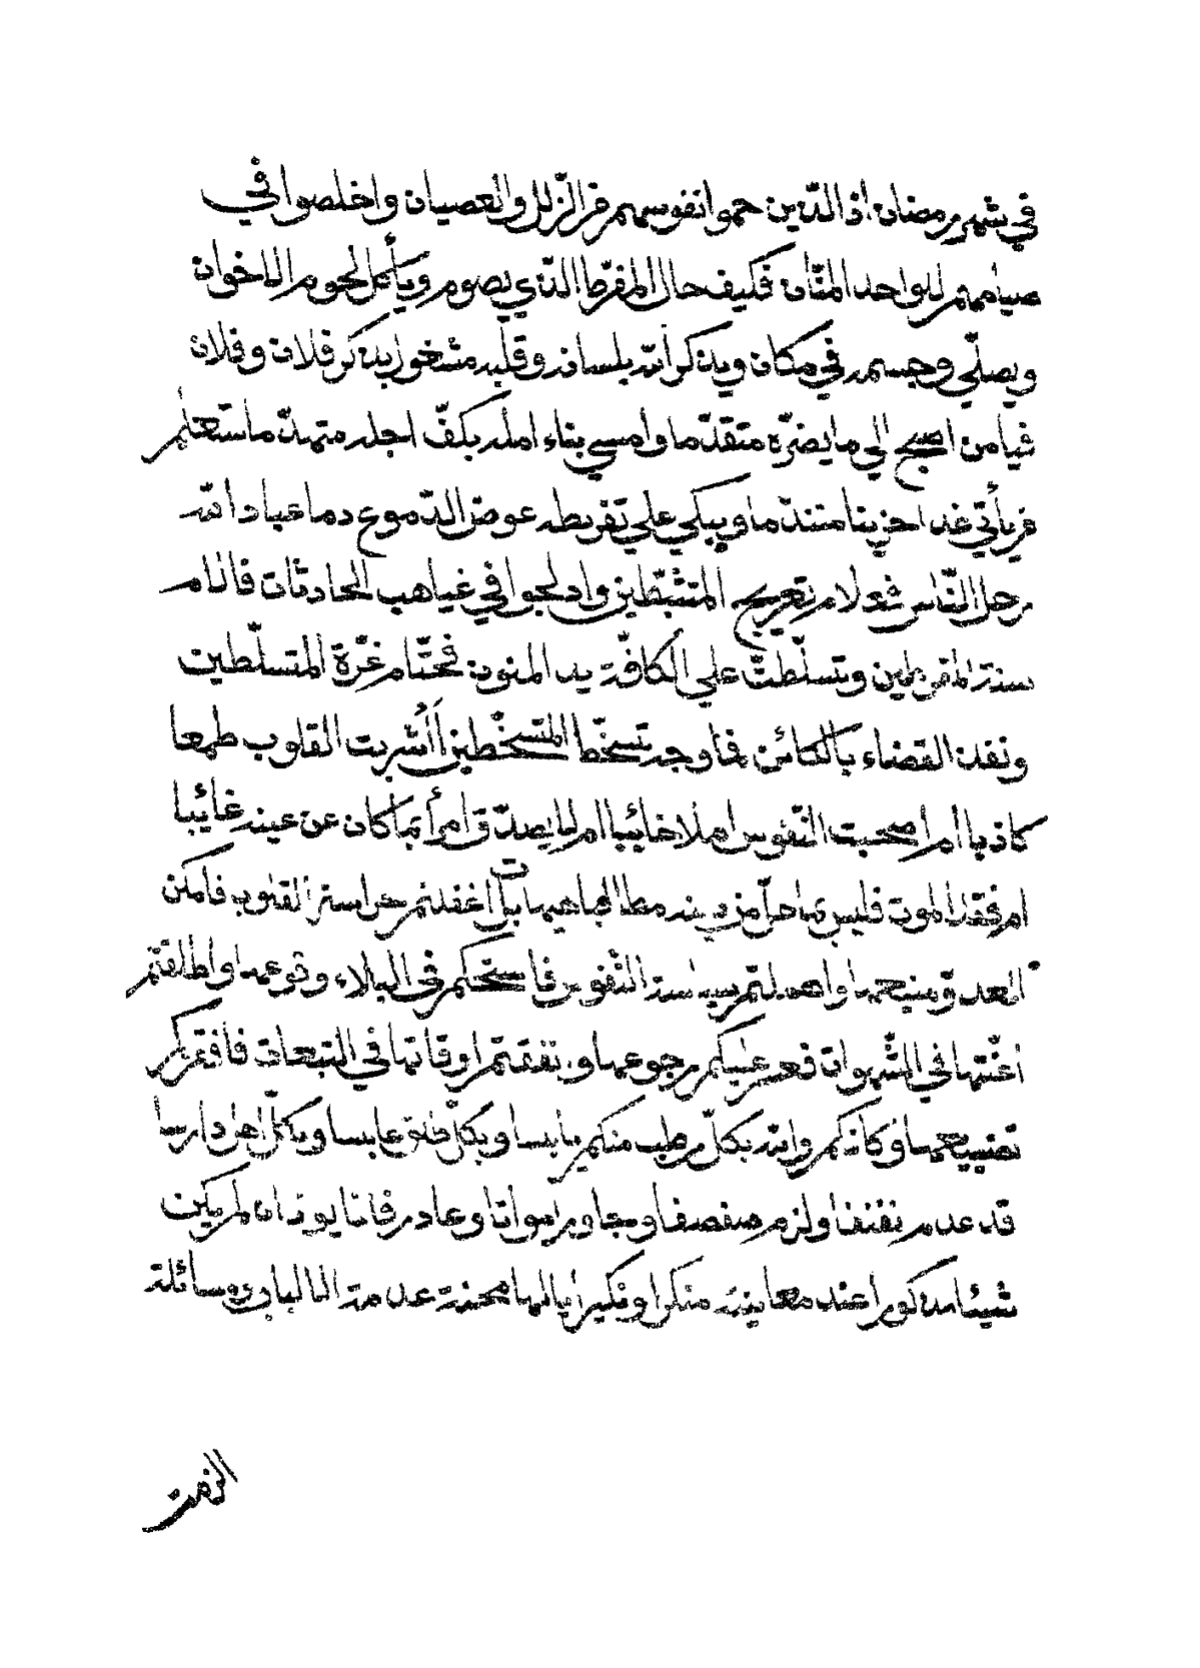 في شهر رمضان اذ الذين حموا نفوسهم من الزّلل والعصيان واخلصوا في
صيامهم للواحد المنّان فكيف حال المفرّط الذي يصوم ويأكل لحوم الاخوان
ويصلّي وجسمه في مكان ويذكر الله بلسانه وقلبه مشغول بذكر فلان وفلان
فيا من اصبح الي ما يضرّه متقدّما وامسي بناء امله بكفّ اجله متهدّما ستعلم
من يأتي غدا حزينا متندّما ويبكي علي تفريطه عوض الدّموع دما عباد الله
رحل النّاس فعلام تعريج المتثبّطين وادلجوا في غياهب الحادثات فالام
سنة المفرطين وتسلّطت علي الكافّة يد المنون فحتّام غرّة المتسلّطين
ونفذ القضاء بالكائن فما وجه تسخّط المتسخّطين أأُشربت القلوب طمعا
كاذبا ام اصحبت النّفوس املا خائبا ام لا يصدّق امرأ بما كان عن عينه غائبا
ام فقد الموت فليس بما حلّ من دينه مطالبا هيهات بل اغفلتم حراسة القلوب فامكن
العدوّ منيحها واهملتم سياسة النّفوس فاستحكم في البلاء وقوعها واطلقتم
اعنّتها في الشّهوات فعسر عليكم رجوعها وانفقتم اوقاتها في التبعات فافقركم
تضييعها وكانكم والله بكلّ رطب منكم يابسا وبكلّ طلق عابسا وبكلّ اهل دارسا
قد عدم نفنفا ولزم صفصفا وجاور امواتا وعاد رفاتا يود ان لم يكن
شيئا مذكورا عند معاينة منكرا ونكيرا يا لها محنة عدمت الا لباري مسائلة